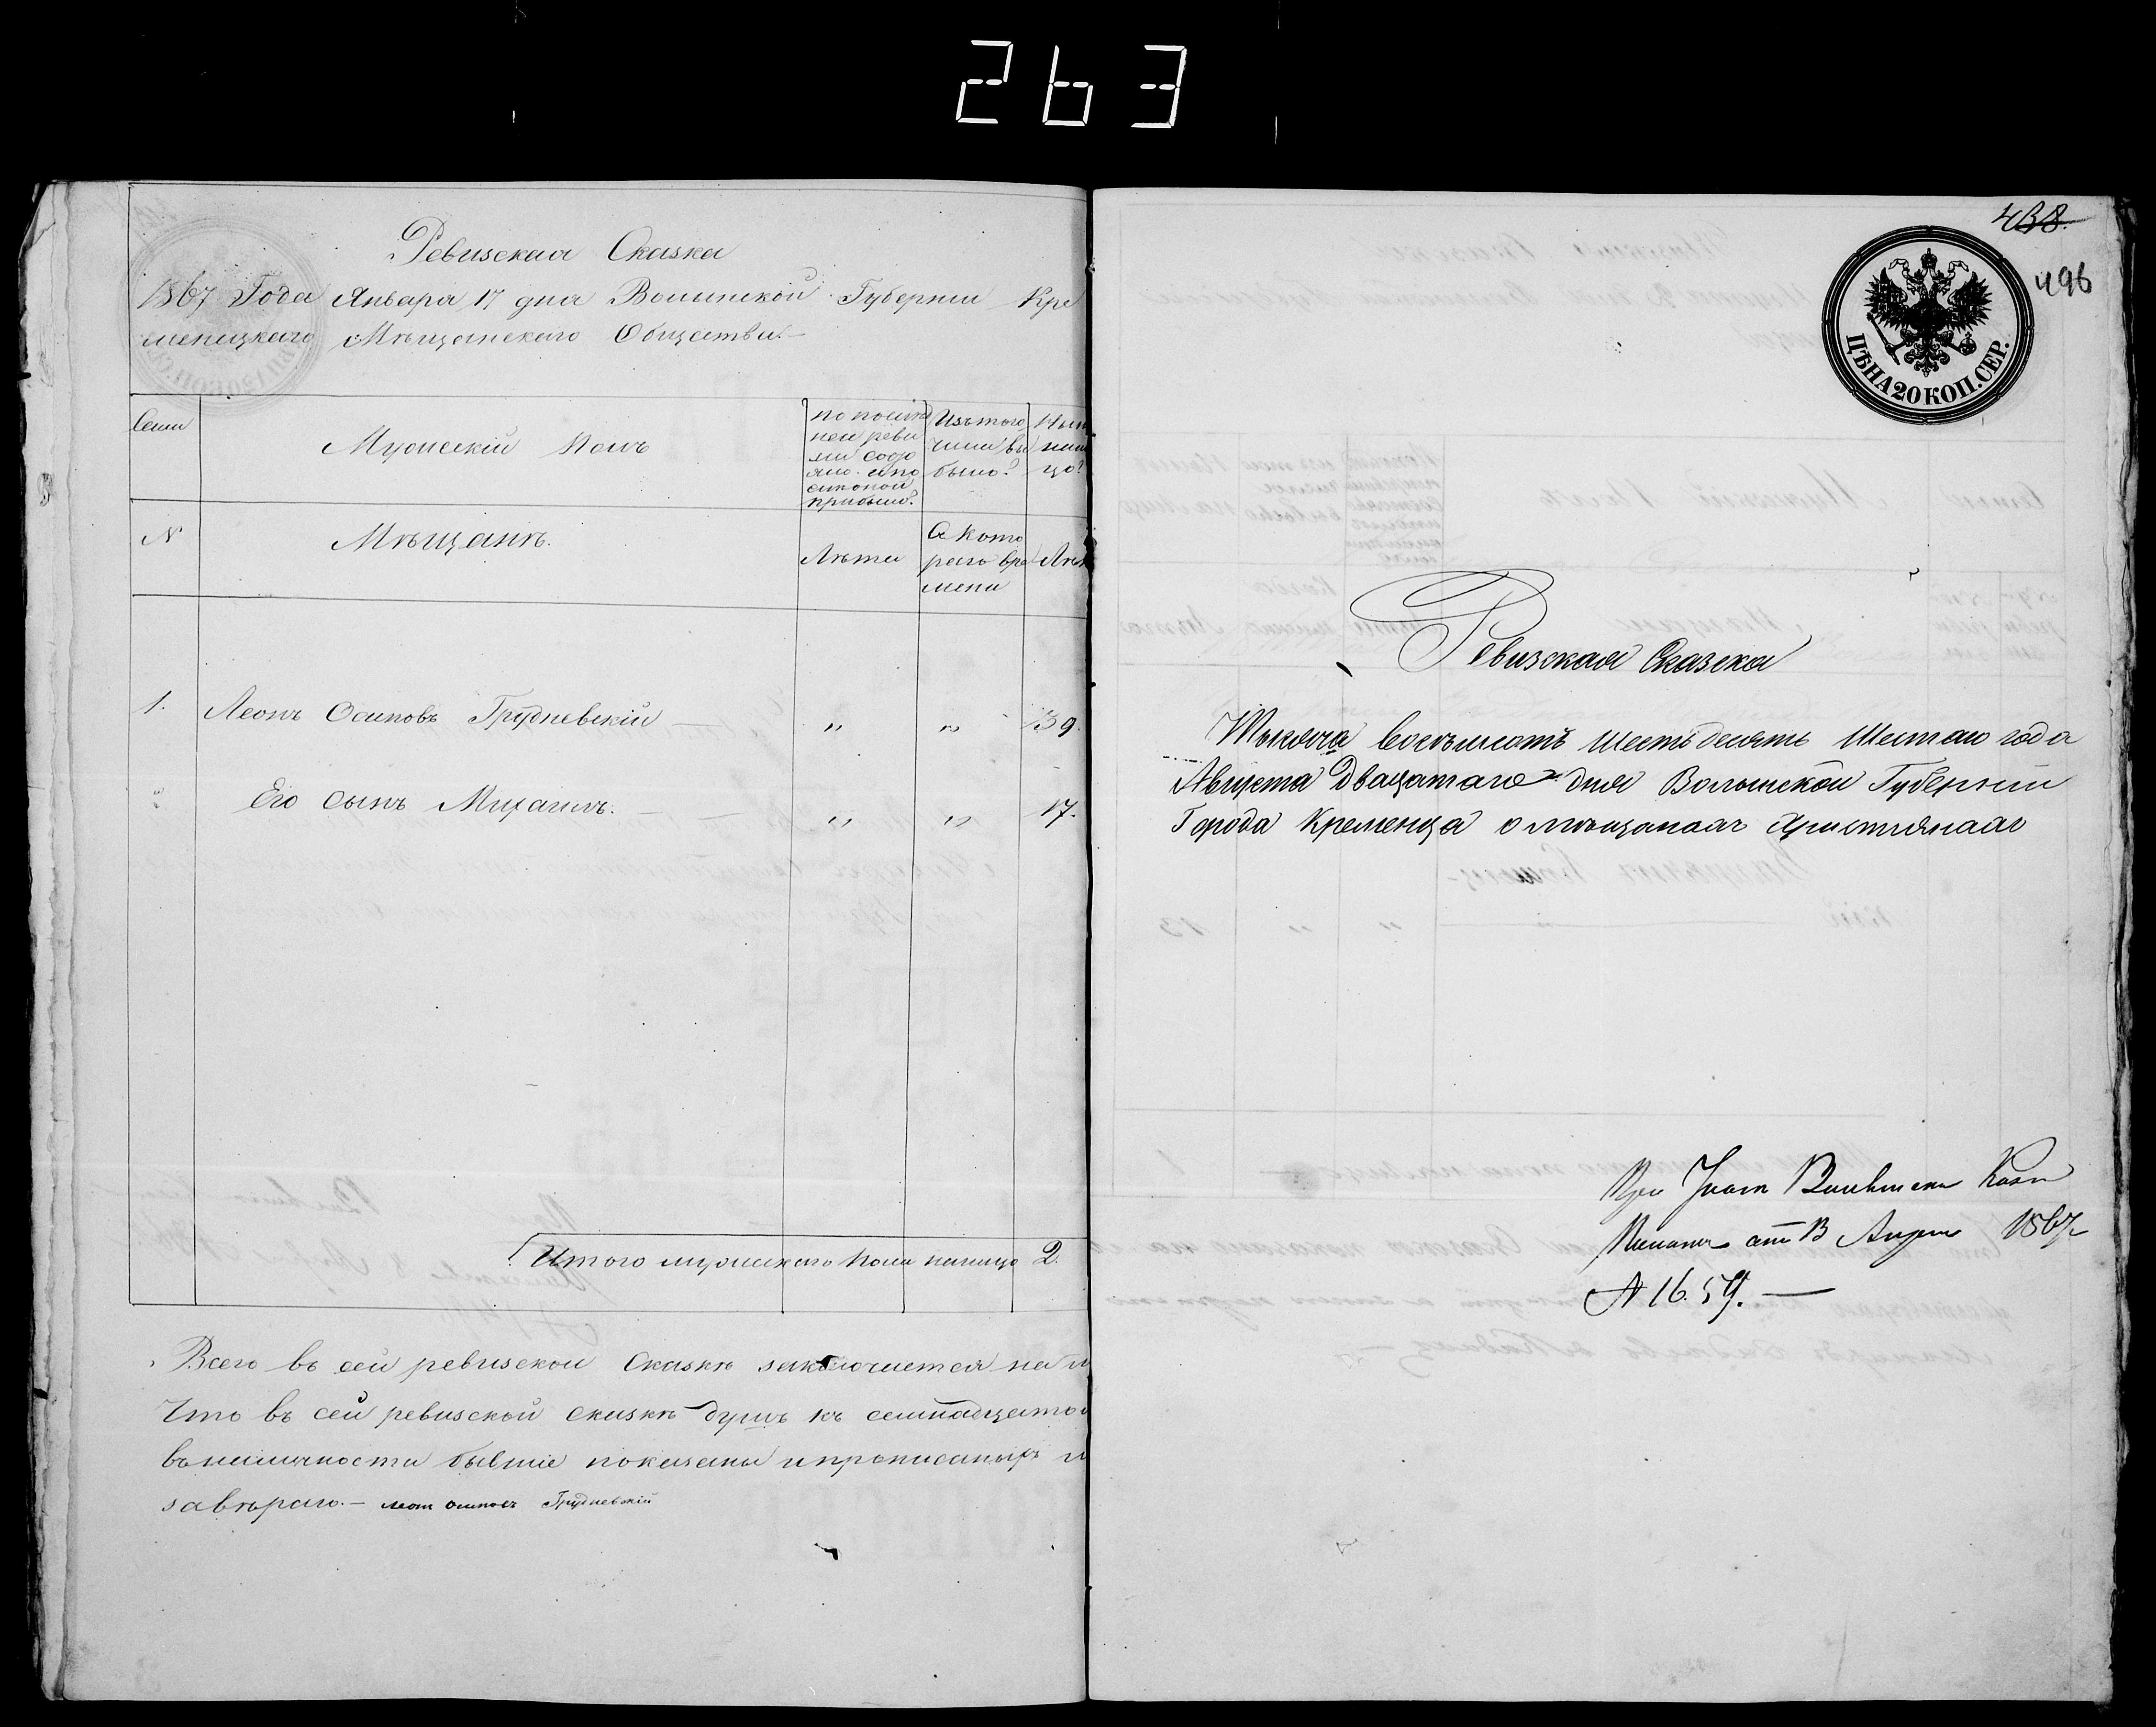 263
Ревизская Сказка
1867 Года Января 17 дня Волынской Губернии Кре
менецкаго Мѣщанскаго Общества.
Семи
Мужескій Полъ
по послѣд
ней реви
зіи состо
яло и по
оной
прибыло?
Изъ того
числа вы
было?
Ныне
нали
цо?
N
Мѣщанъ.
Лѣта
С кото
раго вре
мени
Лѣт
1. Леонъ Осиповъ Грудневскій — " " 39.
Его сынъ Михаилъ. — " " 17.
Итого мужескаго пола налицо 2.
Всего въ сей ревизской Сказкѣ заключается на
Что въ сей ревизской сказкѣ душъ къ семнадцато
въ наличности бывшіе показаны и прописаны
завѣряю. — Леон Осипов Грудневскій
438.
496
ЦѢНА 20 КОП. СЕР.
Ревизская Сказка
Тысяча восемьсотъ шестьдесятъ шестаго года
Августа двацатаго дня Волынской Губерніи
Города Кременца о мѣщанахъ христіянахъ
При Казен
Палаты от 1867
N 16.59. —